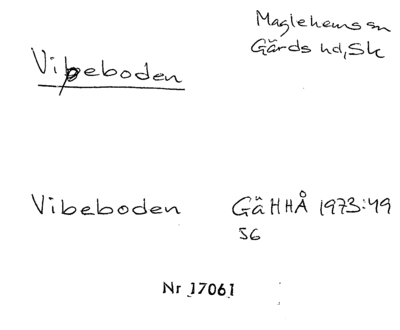 Maglehems sn
Gärds hd, Sk
Vibeboden
Vibeboden GäHHÅ 1973:49
56
Nr 17061